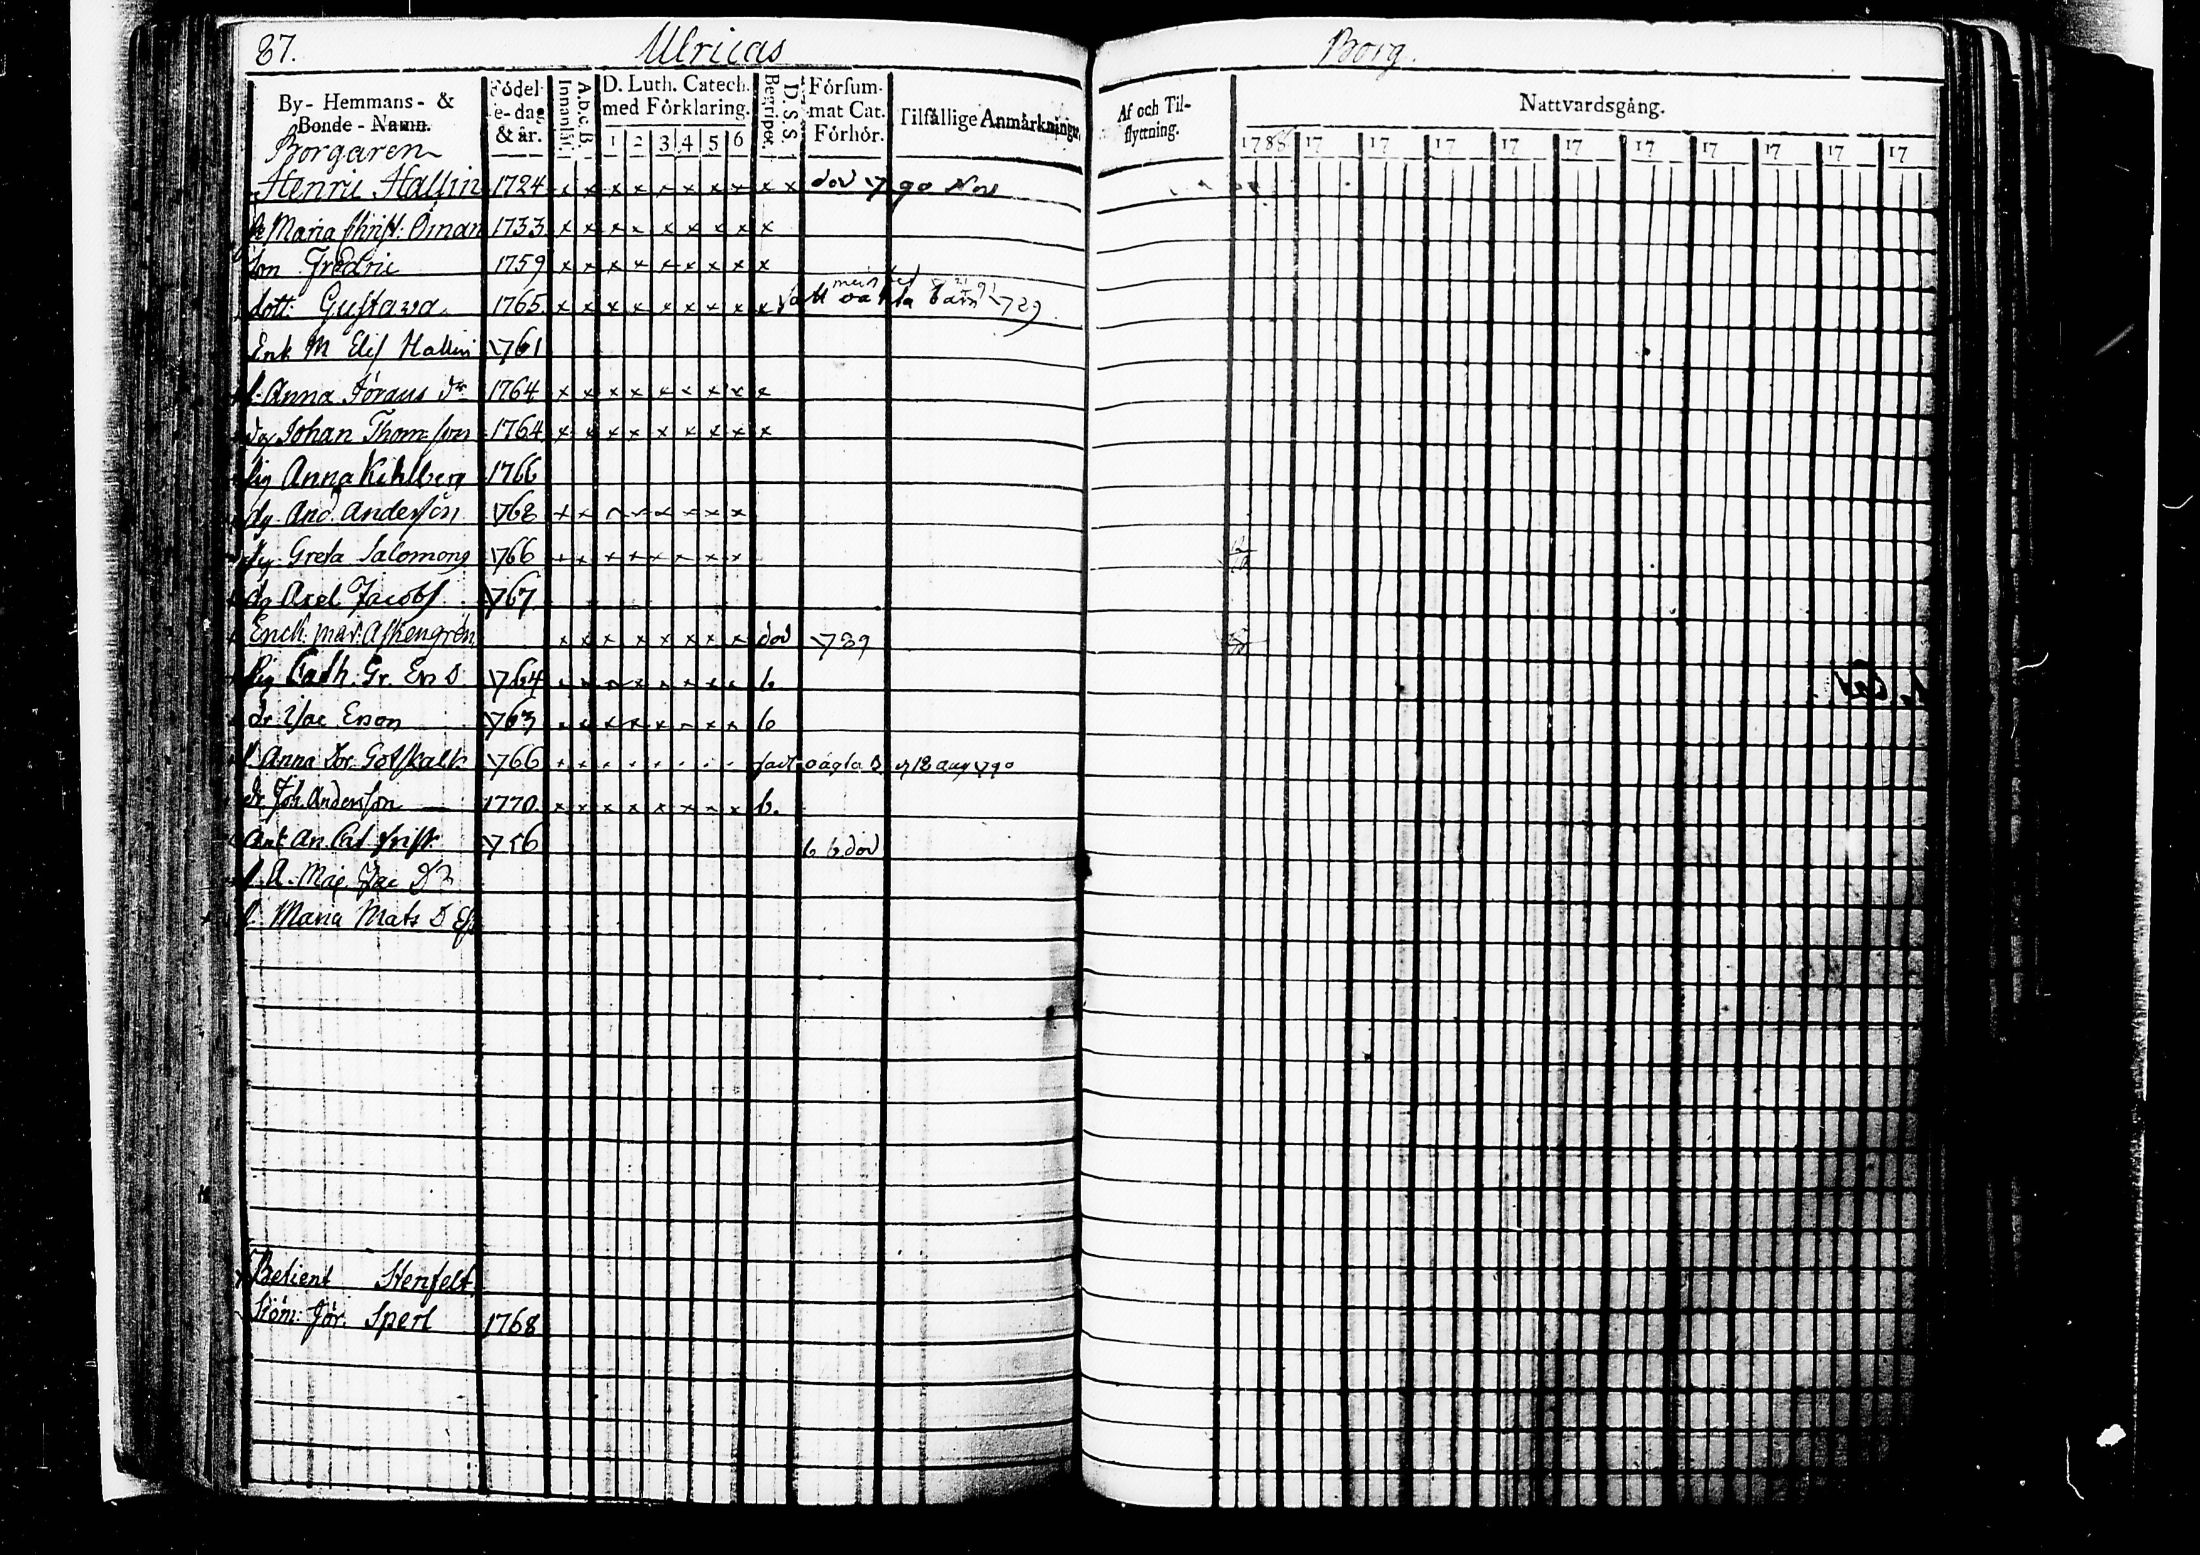 87. Ulricas Borg.
By- Hemmans- & Bonde-Namn.
Födel-e-dag & år.
Innanläs.
A.b.c.B.
D. Luth. Catech. med Förklaring.
1 2 3 4 5 6
Begriper.
D. S. S.
Försum-mat Cat. Förhör.
Tilfällige Anmärkningar
Af och Til-flyttning.
Nattvardsgång.
1788 17 17 17 17 17 17 17 17 17 17
Borgaren
Henric Hallin 1724 x x x x x x x x x x död 1790 Nov
h Maria Christ: Öman 1733 x x x x x x x x x
Son Fredric 1759 x x x x x x x x x
dott: Gustava 1765 x x x x x x x x x oäkta barn 1789
Enk M Elis Hallin 1761
p. Anna Jörans dr 1764 x x x x x x x x x
dg Johan Thom:son 1764 x x x x x x x x x
pig Anna Kihlberg 1766
dg. And. Anderson 1768 x x x x x x x x
pg. Greta Salomons 1766 x x x x x x x x
dg Axel Jacobs 1767
Enck. mar: Askengren x x x x x x x x död 1789
pig Cath. Gr. Ers D 1764 x x x x x x x x b
dr Isac Erson 1763 x x x x x x x x b
p Anna Dor. Gotskalk 1766 oägta B 18 aug 1790
dr Joh Andersson 1770 x x x x x x x x b.
Enk An. Cat 1756 b b död
p. A. Maj. Jac Dr
p. Maria Mats D
Betient Stenfelt
Jör. Sperl 1768